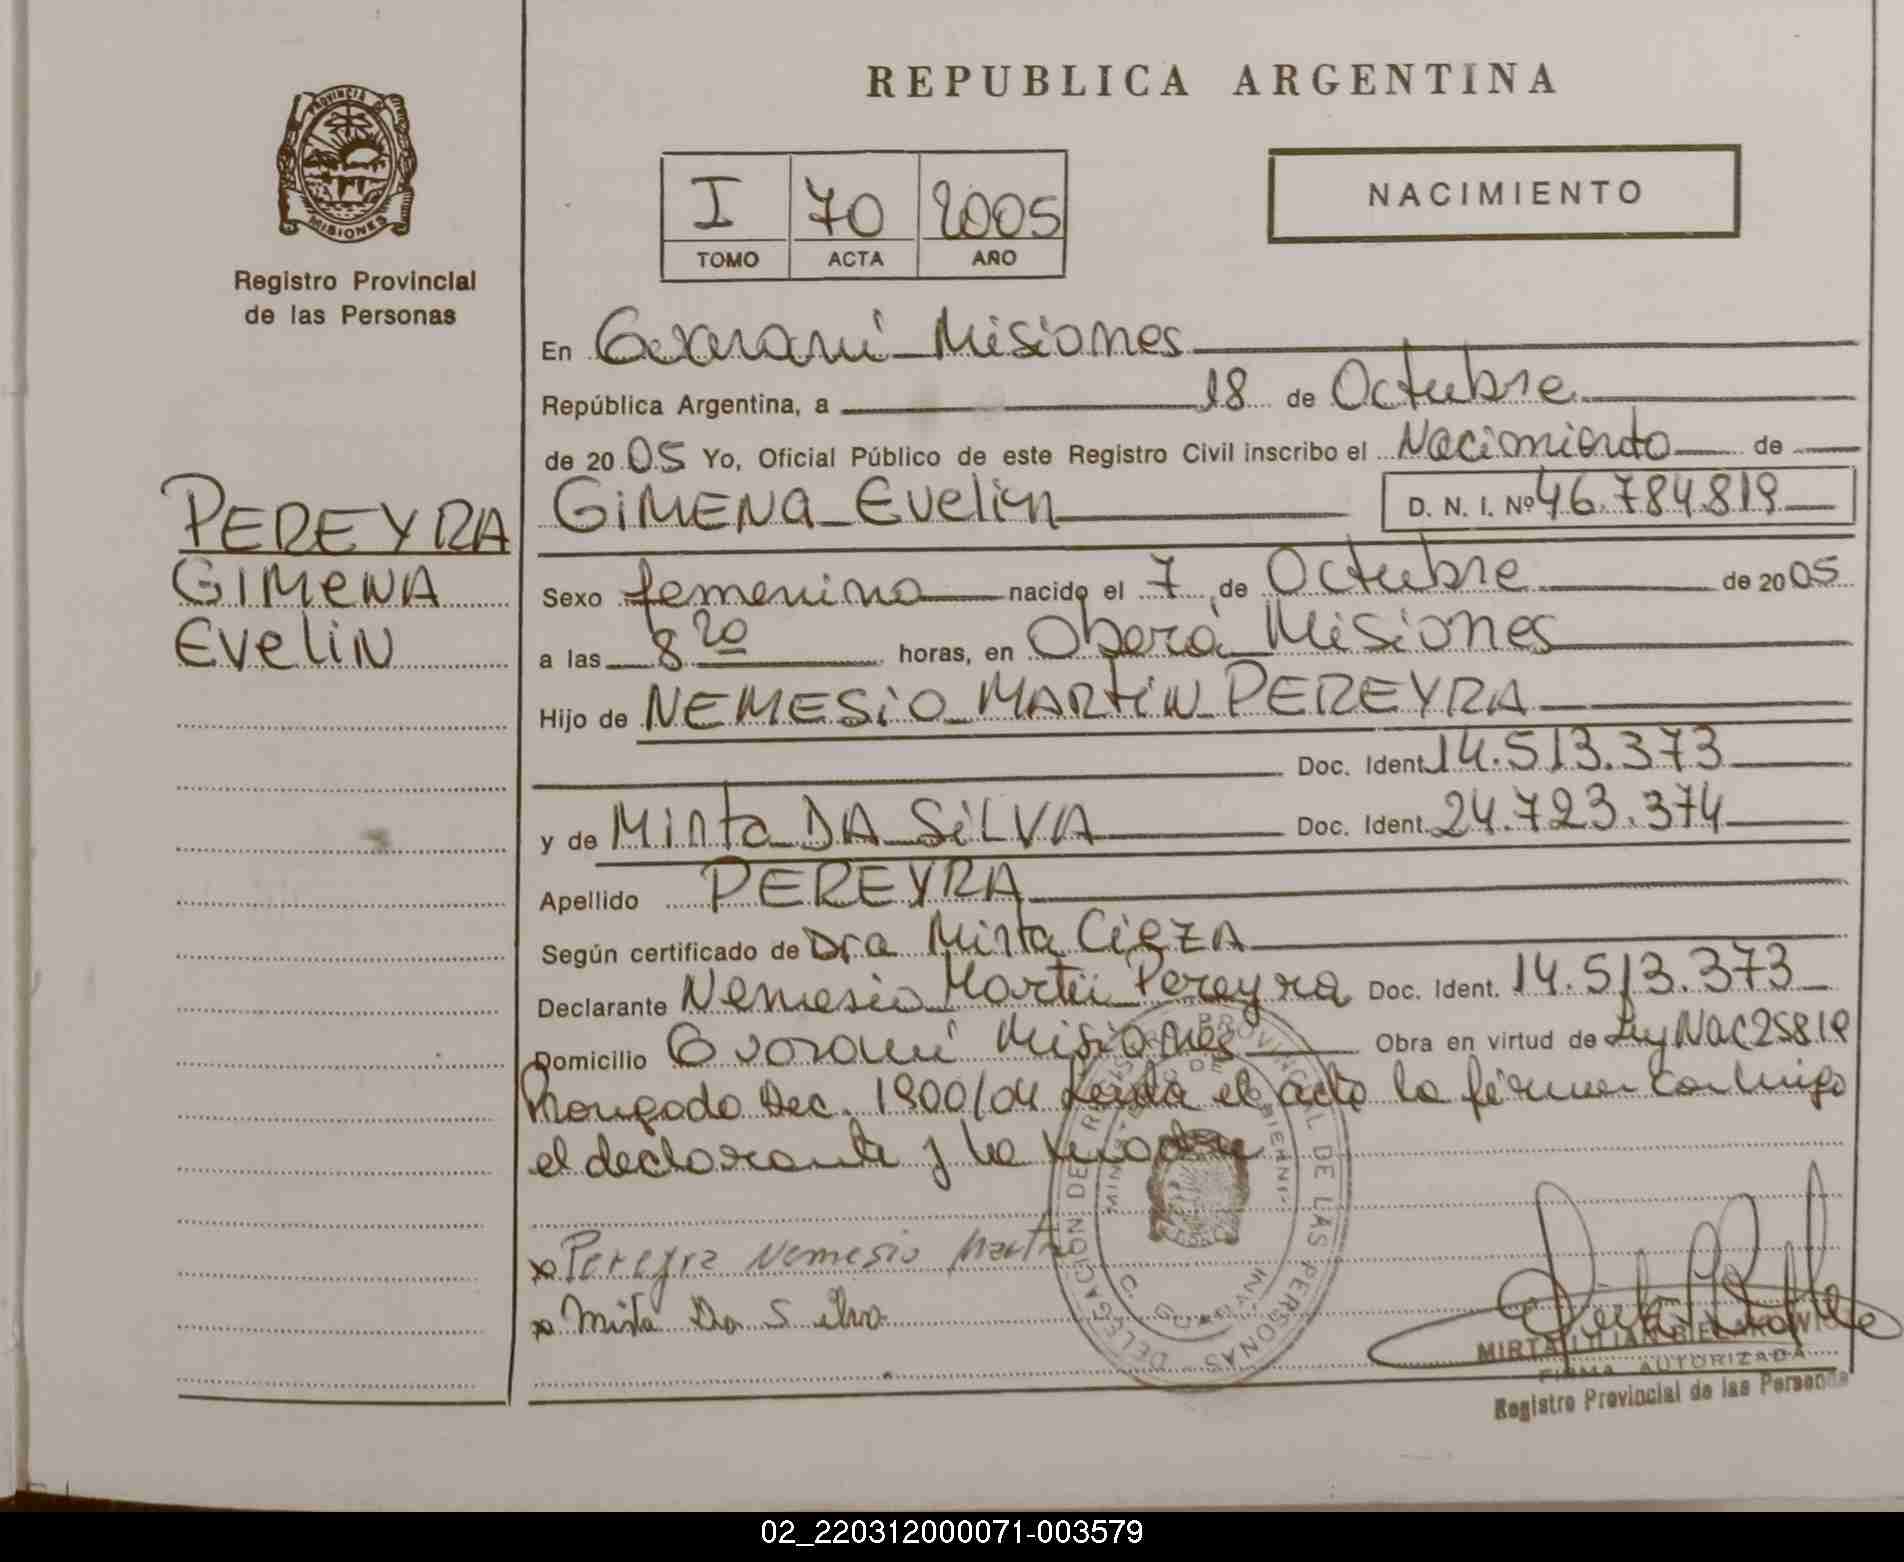 REPUBLICA ARGENTINA
PROVINCIA DE
MISIONES
Registro Provincial
de las Personas
I 70 2005
TOMO ACTA AÑO
NACIMIENTO
En Guaraní Misiones
República Argentina, a 18 de Octubre
de 20 05 Yo, Oficial Público de este Registro Civil inscribo el Nacimiento de
GIMENA Evelin D. N. I. Nº 46.784.819
PEREYRA
GIMENA
Evelin
Sexo femenino nacido el 7 de Octubre de 20 05
a las 8 20 horas, en Oberá Misiones
Hijo de NEMESIO MARTIN PEREYRA
Doc. Ident. 14.513.373
y de Mirta DA SILVA Doc. Ident. 24.723.374
Apellido PEREYRA
Según certificado de Dra Mirta CIEZA
Declarante Nemesio Martin Pereyra Doc. Ident. 14.513.373
Domicilio Guaraní Misiones Obra en virtud de Ley Nac 25819
Dec. 1900/04 Leída el acta la firman conmigo
el declarante y la madre
x Pereyra Nemesio Martin
x Mirta Da Silva
DELEGACION DE REGISTRO PROVINCIAL DE LAS PERSONAS
MIRTA LILIAN
FIRMA AUTORIZADA
Registro Provincial de las Personas
02_220312000071-003579